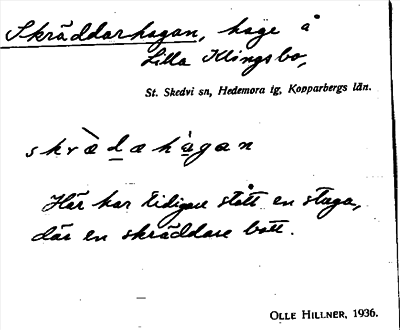 Skräddarhagan, hage å
Lilla Klingsbo,
St. Skedvi sn, Hedemora tg, Kopparbergs län.
skrä̀dahàgan
Här har tidigare stått en stuga,
där en skräddare bott.
OLLE HILLNER, 1936.